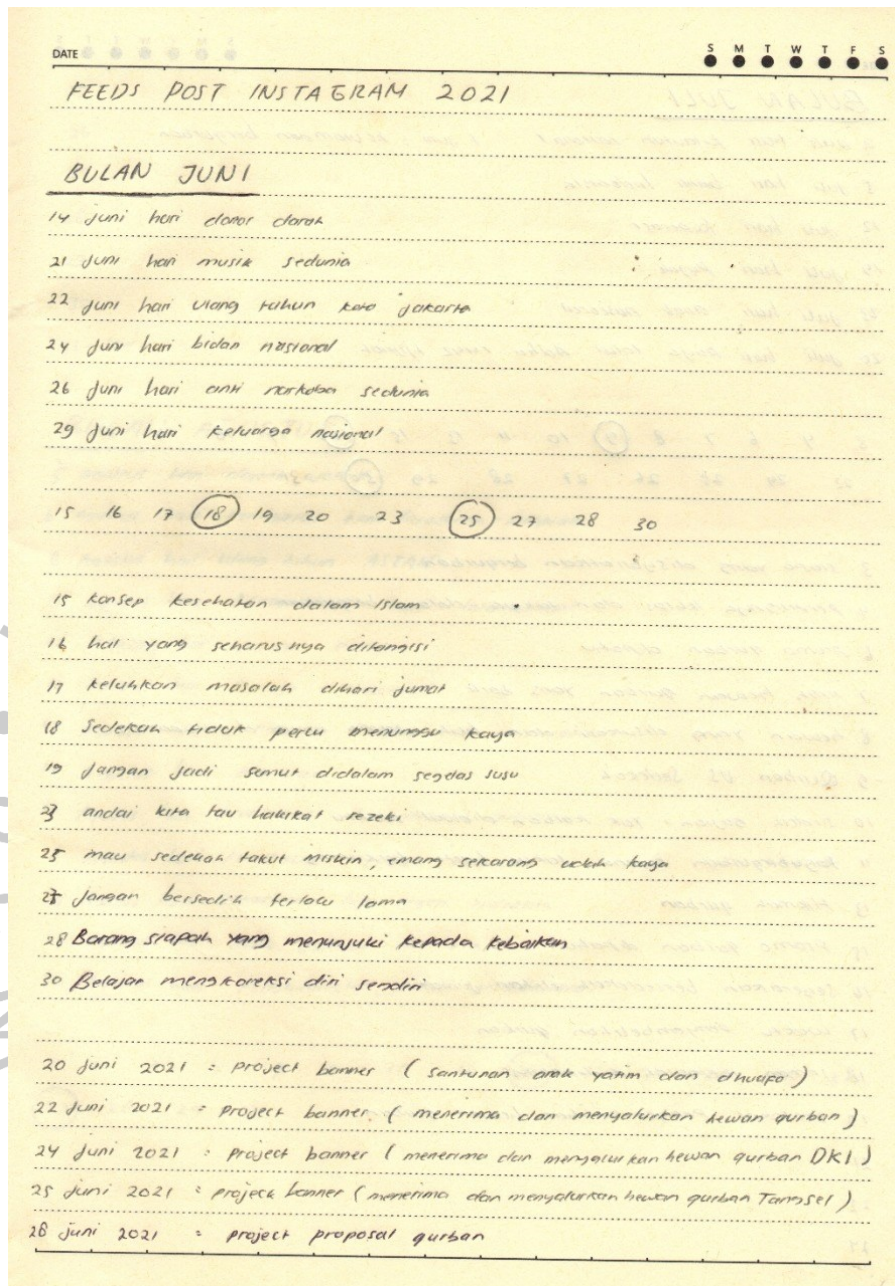 DATE
S M T W T F S
FEEDS POST INSTAGRAM 2021
BULAN JUNI
14 Juni hari donor darah
21 Juni hari musik sedunia
22 Juni hari ulang tahun kota Jakarta
24 Juni hari bidan nasional
26 Juni hari anti narkoba sedunia
29 Juni hari keluarga nasional
15 16 17 18 19 20 23 25 27 28 30
15 konsep kesehatan dalam Islam
16 hal yang seharusnya ditangisi
17 keluhkan masalah dihari jumat
18 Sedekah tidak perlu menunggu kaya
19 Jangan jadi semut didalam segelas susu
23 andai kita tau hakikat rezeki
25 mau sedekah takut miskin, emang sekarang udah kaya
27 Jangan bersedih terlalu lama
28 Barang siapah yang menunjuki kepada kebaikan
30 Belajar mengkoreksi diri sendiri
20 Juni 2021 = project banner (santunan anak yatim dan dhuafa)
22 Juni 2021 = project banner (menerima dan menyalurkan hewan qurban)
24 Juni 2021 = project banner (menerima dan menyalurkan hewan qurban DKI)
25 Juni 2021 = project banner (menerima dan menyalurkan hewan qurban Tangsel)
28 Juni 2021 = project proposal qurban